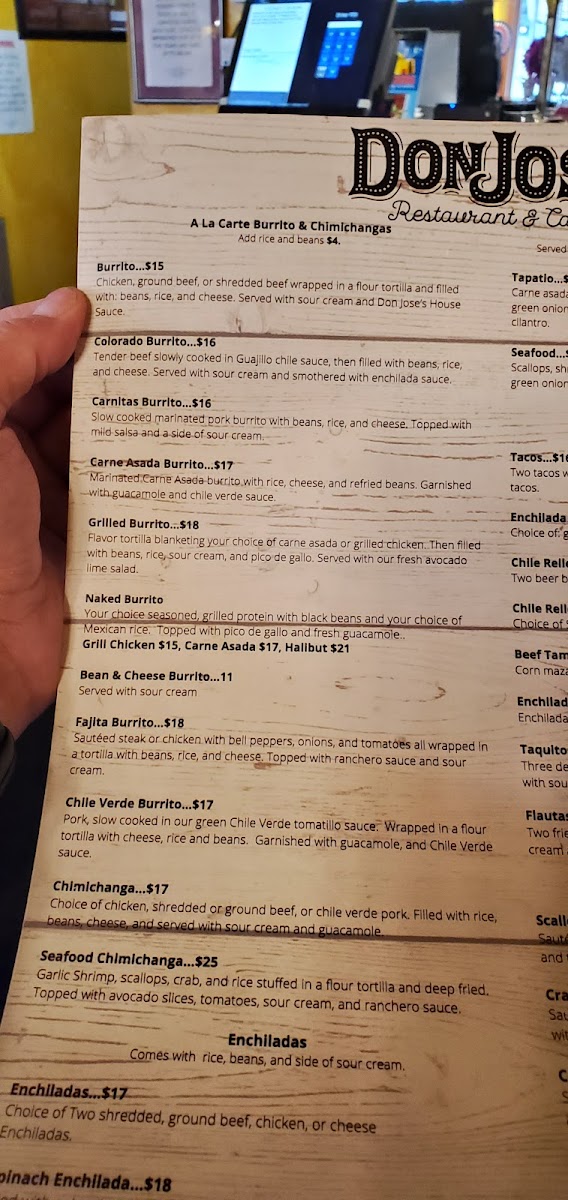 DonJos
Restaurant & Ca
A La Carte Burrito & Chimichangas
Add rice and beans $4.
Burrito...$15
Chicken, ground beef, or shredded beef wrapped in a flour tortilla and filled
with: beans, rice, and cheese. Served with sour cream and Don Jose's House
Sauce.
Colorado Burrito...$16
Tender beef slowly cooked in Guajillo chile sauce, then filled with beans, rice,
and cheese. Served with sour cream and smothered with enchilada sauce.
Carnitas Burrito...$16
Slow cooked marinated pork burrito with beans, rice, and cheese. Topped with
mild salsa and a side of sour cream.
Carne Asada Burrito...$17
Marinated Carne Asada burrito with rice, cheese, and refried beans. Garnished
with guacamole and chile verde sauce.
Grilled Burrito...$18
Flavor tortilla blanketing your choice of carne asada or grilled chicken. Then filled
with beans, rice, sour cream, and pico de gallo. Served with our fresh avocado
lime salad.
Naked Burrito
Your choice seasoned, grilled protein with black beans and your choice of
Mexican rice. Topped with pico de gallo and fresh guacamole..
Grill Chicken $15, Carne Asada $17, Halibut $21
Bean & Cheese Burrito...11
Served with sour cream
Fajita Burrito...$18
Sautéed steak or chicken with bell peppers, onions, and tomatoes all wrapped in
a tortilla with beans, rice, and cheese. Topped with ranchero sauce and sour
cream.
Chile Verde Burrito...$17
Pork, slow cooked in our green Chile Verde tomatillo sauce. Wrapped in a flour
tortilla with cheese, rice and beans. Garnished with guacamole, and Chile Verde
sauce.
Chimichanga...$17
Choice of chicken, shredded or ground beef, or chile verde pork. Filled with rice,
beans, cheese, and served with sour cream and guacamole.
Seafood Chimichanga...$25
Garlic Shrimp, scallops, crab, and rice stuffed in a flour tortilla and deep fried.
Topped with avocado slices, tomatoes, sour cream, and ranchero sauce.
Enchiladas
Comes with rice, beans, and side of sour cream.
Enchiladas...$17
Choice of Two shredded, ground beef, chicken, or cheese
Enchiladas.
pinach Enchilada...$18
Served
Tapatio...$
Carne asada
green onion
cilantro.
Seafood...
Scallops, sh
green onion
Tacos...$16
Two tacos w
tacos.
Enchilada
Choice of: g
Chile Relle
Two beer b
Chile Rell
Choice of
Beef Tam
Corn maza
Enchilad
Enchilada
Taquito
Three de
with sou
Flautas
Two frie
cream
Scall
Sauté
and
Cra
Sau
wit
C
S